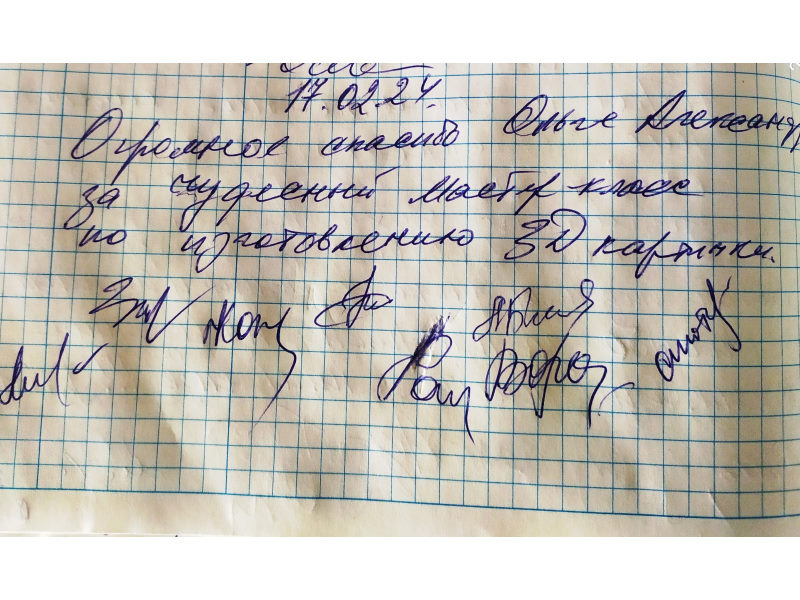 17.02.24.
Огромное спасибо Ольге Александр
за чудесный мастер-класс
по изготовлению 3D картины.